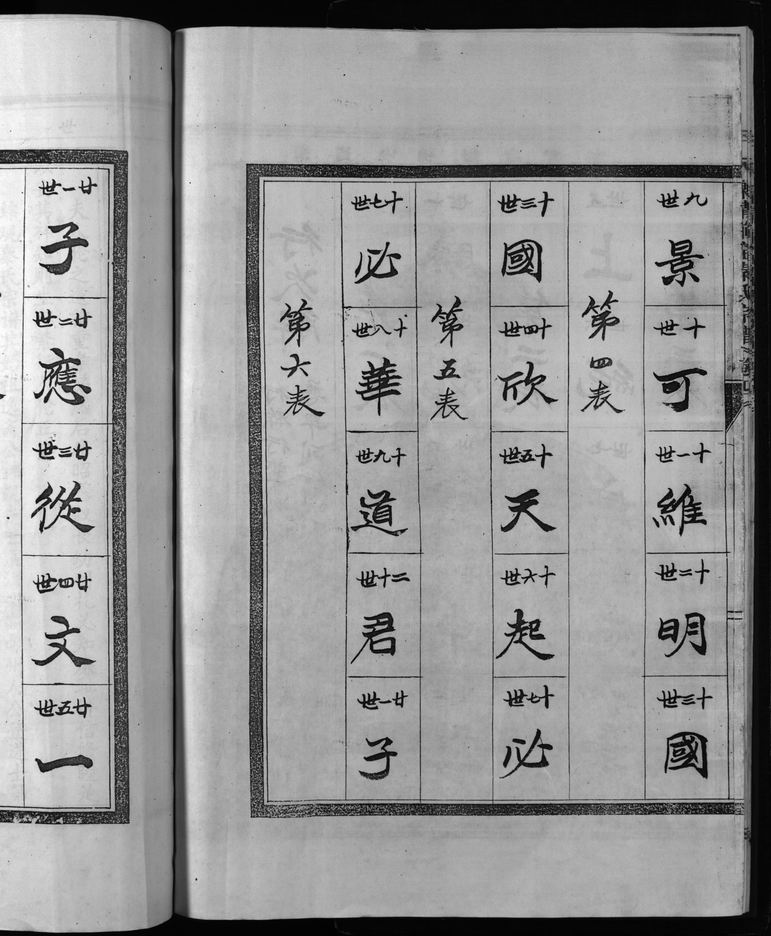 九世 景 十世 可 十一世 維 十二世 明 十三世 國
第四表
十三世 國 十四世 欣 十五世 天 十六世 起 十七世 必
第五表
十七世 必 十八世 華 十九世 道 二十世 君 廿一世 子
第六表
廿一世 子 廿二世 應 廿三世 從 廿四世 文 廿五世 一